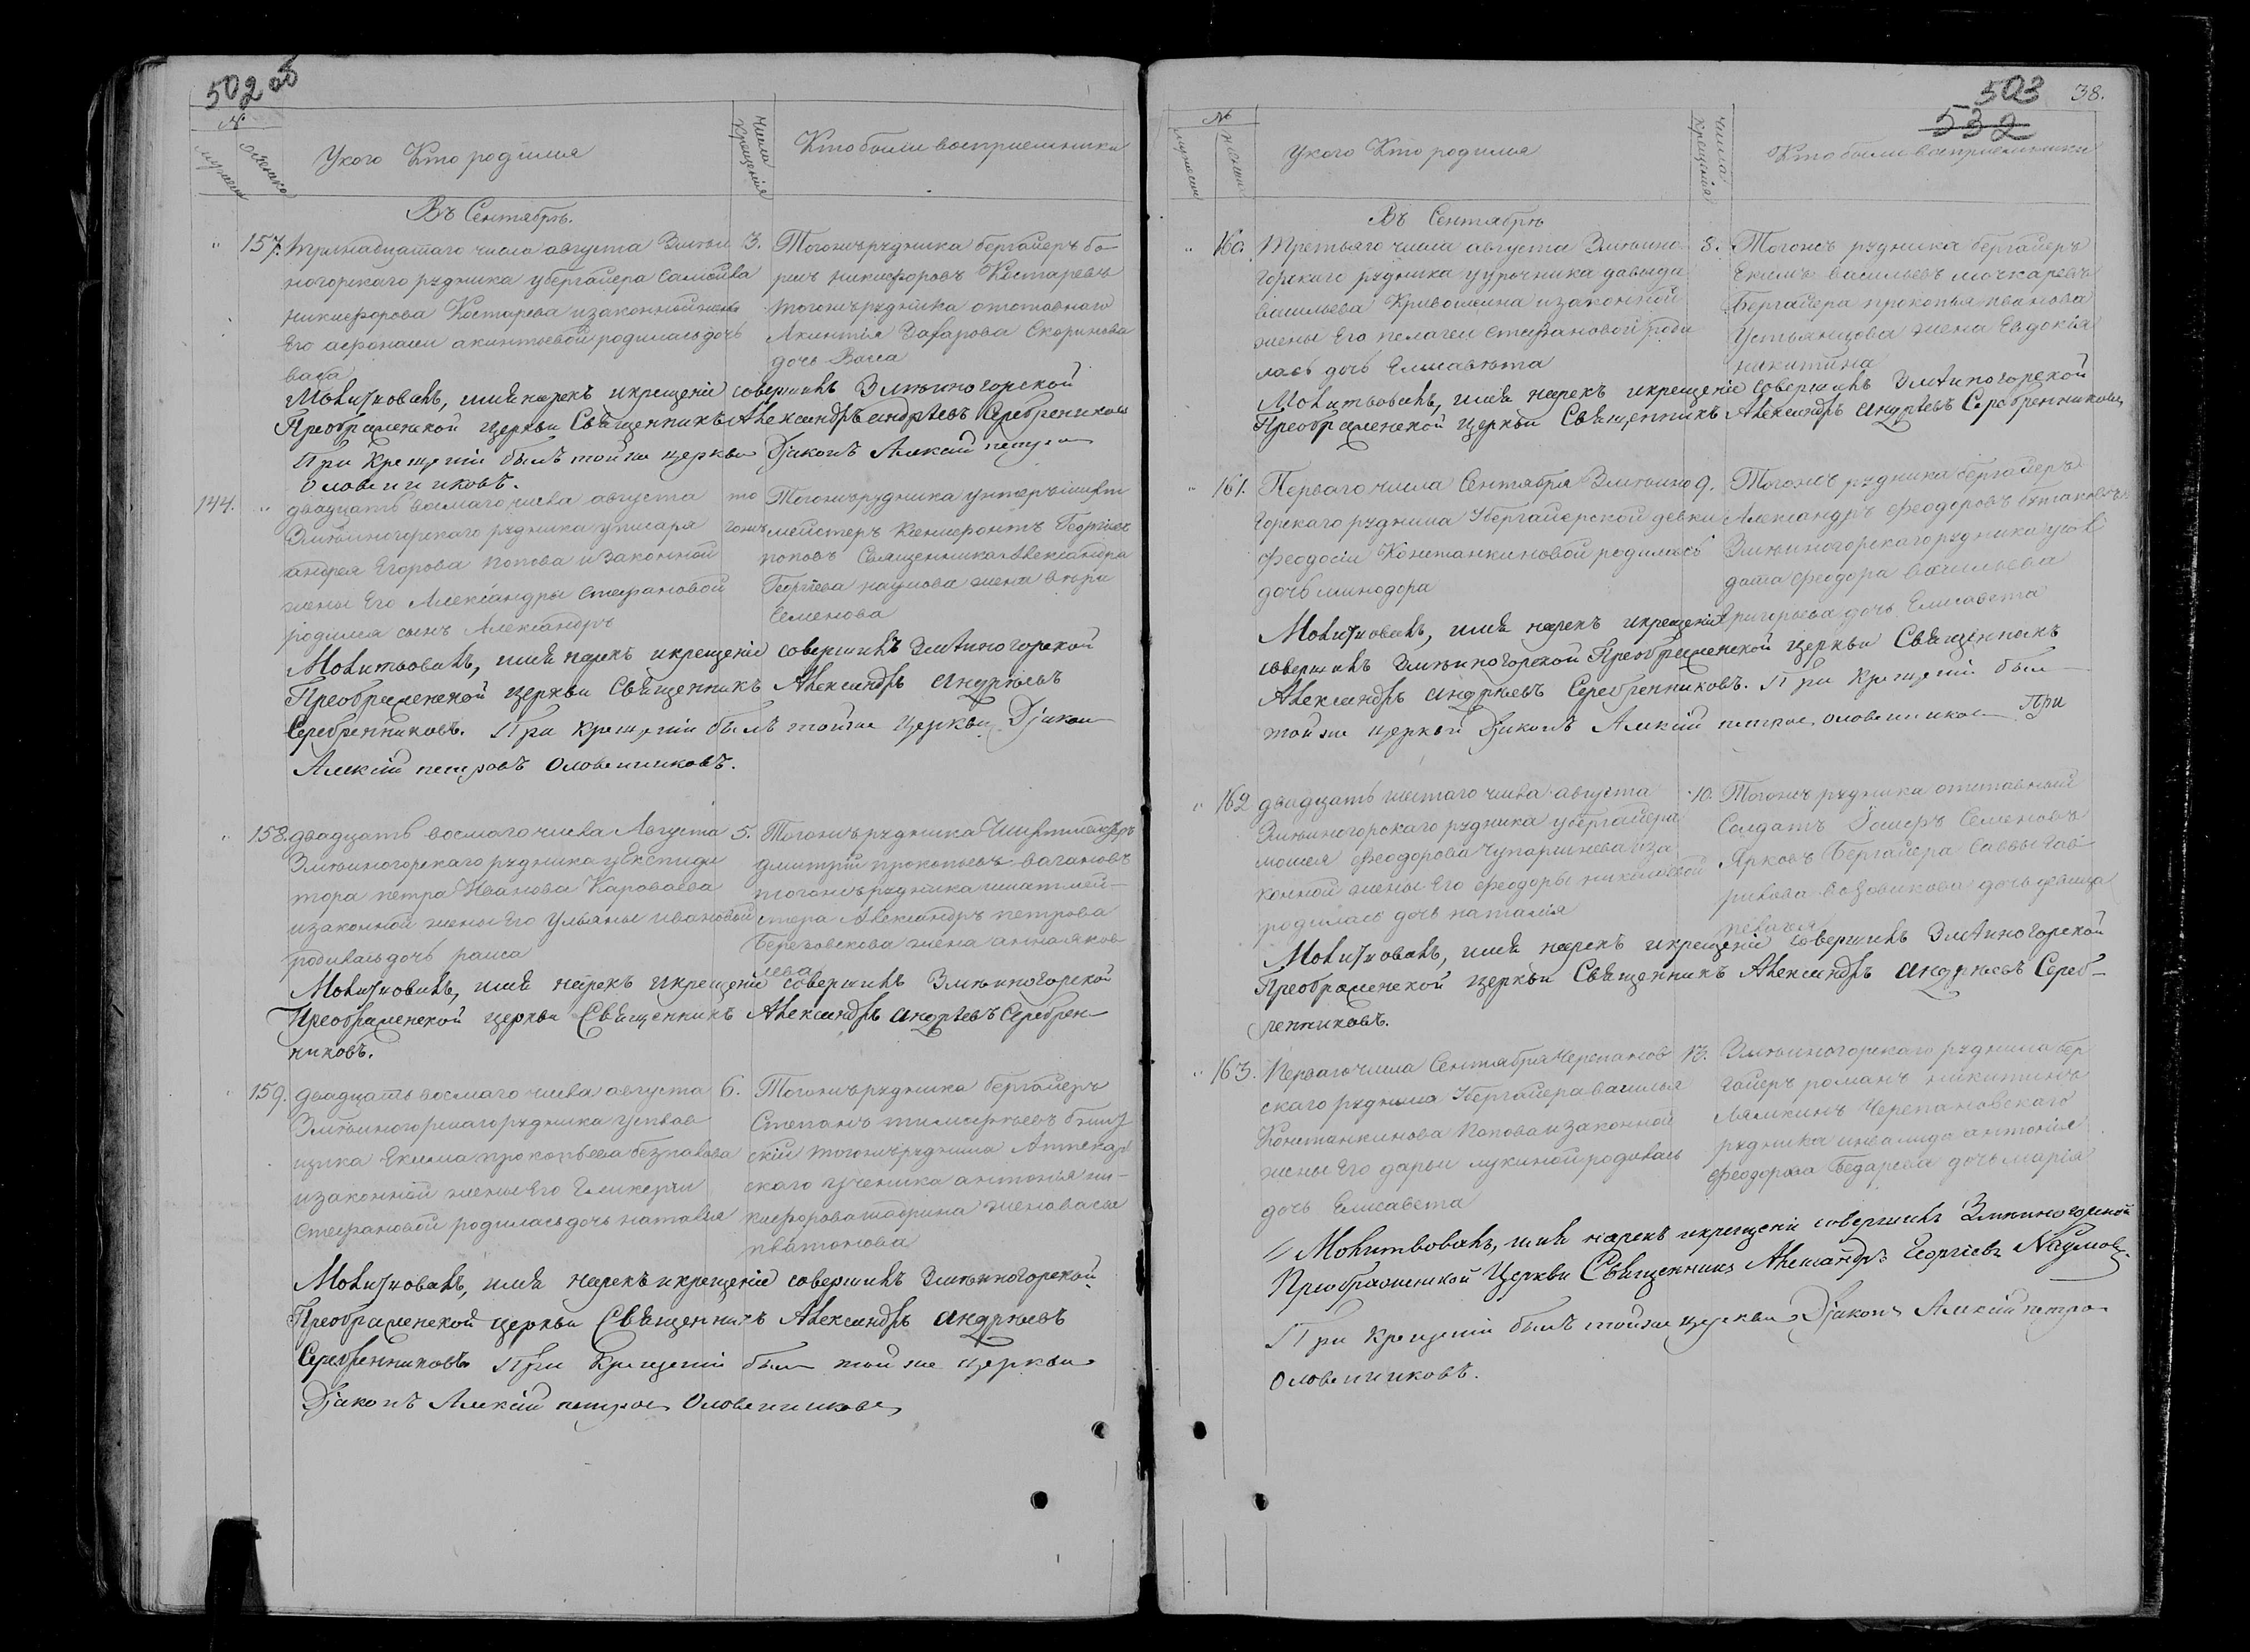 502 об
№
мужеска
женска
У кого Кто родился
числа крещенія
Кто были восприемники
Въ Сентябрѣ.
157. тринадцатаго числа августа Змѣи
ногорскаго рудника у бергайера самойла
никифорова Костарева и законной жены
Его акинтьевой родилась дочь
васа
3. Тогожъ рудника бергайеръ бо
рисъ никифоровъ Костаревъ
тогожъ рудника отставнаго
Акинтія Захарова Скорикова
дочь Васса
Молитвовалъ, имя нарекъ и крещеніе совершилъ Змѣиногорской
Преображенской церкви Священникъ Александръ андрѣевъ Серебрениковъ
При крещеніи былъ тойже церкви Діаконъ Алексѣй петровъ
Оловенниковъ.
144. двадцать восмаго числа августа
Змѣиногорскаго рудника у писаря
андрея Егорова попова и законной
жены Его Александры стефановой
родился сынъ Александръ
то
гожъ
Тогожъ рудника унтеръшихт
мейстеръ Ксенофонтъ Георгіевъ
поповъ Священника Александра
Георгіева наумова жена вѣра
Семенова
Молитвовалъ, имя нарекъ и крещеніе совершилъ Змѣиногорской
Преображенской церкви Священникъ Александръ андрѣевъ
Серебренниковъ. При крещеніи былъ тойже церкви Діаконъ
Алексѣй петровъ Оловенниковъ.
158. двадцать восмаго числа Августа
Змѣиногорскаго рудника у Експиди
тора петра Иванова Караваева
и законной жены Его Ульяны ивановой
родилась дочь раиса
5. Тогожъ рудника Шихтмейстеръ
дмитрій прокопьевъ вагановъ
тогожъ рудника шихтмей-
стера Александръ петрова
Березовскова жена анна яков
лева
Молитвовалъ, имя нарекъ и крещеніе совершилъ Змѣиногорской
Преображенской церкви Священникъ Александръ андрѣевъ Серебрен-
никовъ.
159. двадцать восмаго числа августа
Змѣиногорскаго рудника у плав
щика Екима прокопьева
и законной жены Его Гликерии
Стефановой родилась дочь наталья
6. Тогожъ рудника бергайеръ
Степанъ тимофеевъ
скій тогожъ рудника Аптекар
скаго ученика антонья ни-
кифорова жена васса
платонова
Молитвовалъ, имя нарекъ и крещеніе совершилъ Змѣиногорской
Преображенской церкви Священникъ Александръ андрѣевъ
Серебренниковъ При крещеніи былъ тойже церкви
Діаконъ Алексѣй петровъ Оловенниковъ
503 38.
532
№
мужеска
женска
У кого Кто родился
числа крещенія
Кто были восприемники
Въ Сентябрѣ
160. Третьяго числа августа Змѣино
горскаго рудника у урочника давыда
васильева Кривошеина и законной
жены Его пелагеи стефановой роди
лась дочь Елисавѣта
8. Тогожъ рудника бергайеръ
Екимъ васильевъ мочкаревъ
Бергайера прокопья иванова
Устьянцова жена Евдокія
никитина
Молитвовалъ, имя нарекъ и крещеніе совершилъ Змѣиногорской
Преображенской церкви Священникъ Александръ андрѣевъ Серебренниковъ
161. Перваго числа Сентября Змѣино
горскаго рудника У бергайерской девки
Феодосіи Констанкиновой родилась
дочь минодора
9. Тогожъ рудника бергайеръ
Александръ феодоровъ
Змѣиногорскаго рудника у сол
дата феодора васильева
григорьева дочь Елисавета
Молитвовалъ, имя нарекъ и крещеніе
совершилъ Змѣиногорской Преображенской церкви Священникъ
Александръ андрѣевъ Серебренниковъ. При крещеніи былъ
тойже церкви Діаконъ Алексѣй петровъ Оловенниковъ При
162 двадцать шестаго числа августа
Змѣиногорскаго рудника у бергайера
моисея феодорова Чупоршнева и за
конной жены Его феодоры николаевой
родилась дочь наталія
10. Тогожъ рудника отставный
Солдатъ Семеновъ
Ярковъ Бергайера Саввы Гав
рилова дочь девица
пелагея
Молитвовалъ, имя нарекъ и крещеніе совершилъ Змѣиногорской
Преображенской церкви Священникъ Александръ андрѣевъ Сереб-
ренниковъ.
163. Перваго числа Сентября Черепанов
скаго рудника У бергайера василья
Констанкинова Попова и законной
жены Его дарьи лукиной родилась
дочь Елисавета
13. Змѣиногорскаго рудника бер
гайеръ романъ никитинъ
Лямкинъ Черепановскаго
рудника инвалида антонія
феодорова Бедарева дочь марія
Молитвовалъ, имя нарекъ и крещеніе совершилъ Змѣиногорской
Преображенской Церкви Священникъ Александръ Георгіевъ Наумовъ.
При крещеніи былъ тойже церкви Діаконъ Алексѣй петровъ
Оловенниковъ.